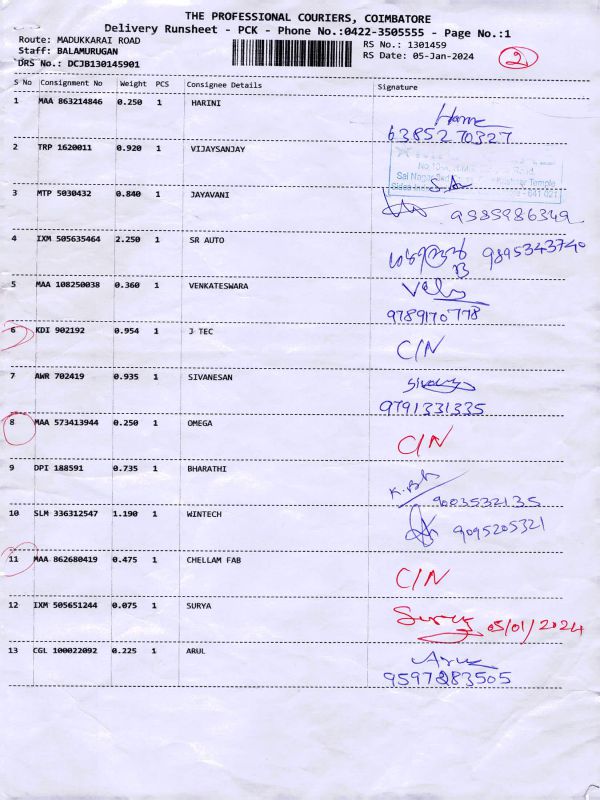 THE PROFESSIONAL COURIERS, COIMBATORE
Delivery Runsheet - PCK - Phone No.:0422-3505555 - Page No.:1
Route: MADUKKARAI ROAD
Staff: BALAMURUGAN
DRS No.: DCJB130145901
RS No.: 1301459
RS Date: 05-Jan-2024
2
S No Consignment No Weight PCS Consignee Details Signature
1 MAA 863214846 0.250 1 HARINI
6385270327
2 TRP 1620011 0.920 1 VIJAYSANJAY
Sai Nagar Temple
641 021
3 MTP 5030432 0.840 1 JAYAVANI
9585986349
4 IXM 505635464 2.250 1 SR AUTO 9895343740
5 MAA 108250038 0.360 1 VENKATESWARA
9789170778
6 KDI 902192 0.954 1 J TEC C/N
7 AWR 702419 0.935 1 SIVANESAN
9791331335
8 MAA 573413944 0.250 1 OMEGA C/N
9 DPI 188591 0.735 1 BHARATHI
9003532135
10 SLM 336312547 1.190 1 WINTECH 9095205321
11 MAA 862680419 0.475 1 CHELLAM FAB C/N
12 IXM 505651244 0.075 1 SURYA Surya 05/01/2024
13 CGL 100022092 0.225 1 ARUL Arul
9597283505